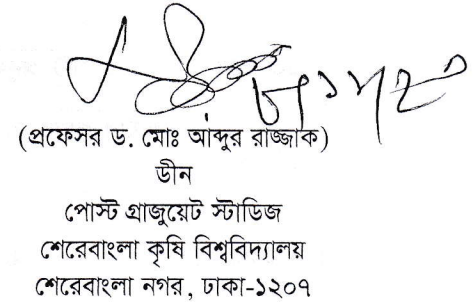 (প্রফেসর ড. মোঃ আব্দুর রাজ্জাক)
ডীন
পোস্ট গ্রাজুয়েট স্টাডিজ
শেরেবাংলা কৃষি বিশ্ববিদ্যালয়
শেরেবাংলা নগর, ঢাকা-১২০৭